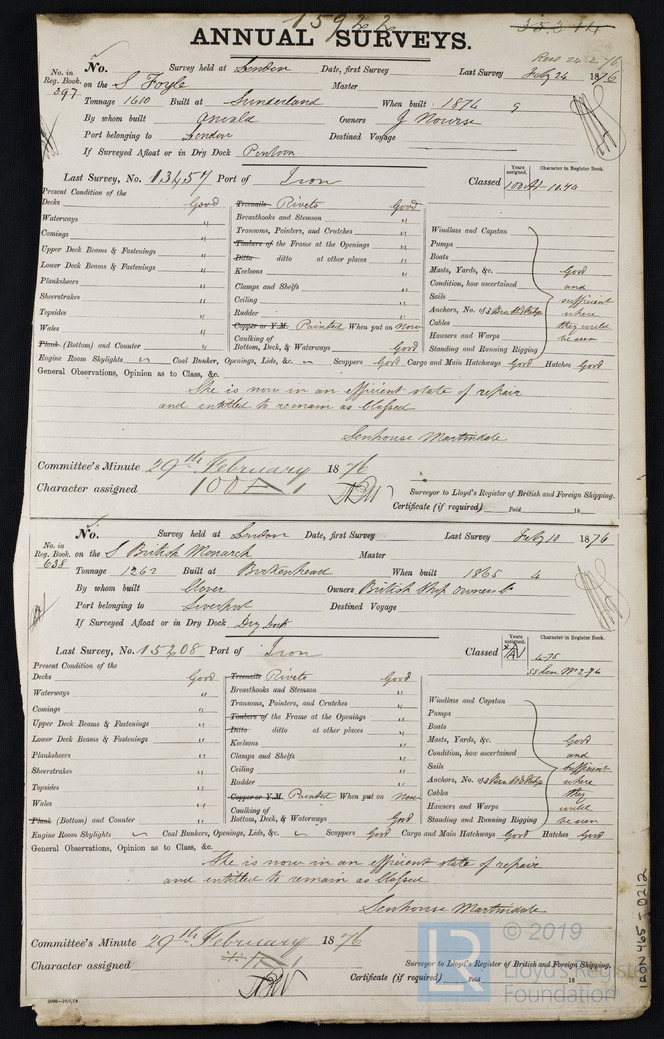 15922
ANNUAL SURVEYS.
Rec 24-2-76
No. Survey held at London Date, first Survey Last Survey Feby 24 1876
No. in Reg. Book. 397 on the S Foyle Master
Tonnage 1610 Built at Sunderland When built 1874 9
By whom built Oswald Owners J Nourse
Port belonging to London Destined Voyage
If Surveyed Afloat or in Dry Dock
Last Survey, No. 13457 Port of Iron Classed
Years assigned. Character in Register Book.
100A1
Present Condition of the
Decks Good Treenails Rivets Good
Waterways " Breasthooks and Stemson " Windlass and Capstan
Comings " Transoms, Pointers, and Crutches " Pumps
Upper Deck Beams & Fastenings " Timbers of the Frame at the Openings " Boats
Lower Deck Beams & Fastenings " Ditto ditto at other places " Masts, Yards, &c. Good
Planksheers " Keelsons " Condition, how ascertained and
Sheerstrakes " Clamps and Shelfs " Sails sufficient
Topsides " Ceiling " Anchors, No. of where
Wales " Rudder " Cables they could
Plank (Bottom) and Counter " Copper or Y.M. Painted When put on now Hawsers and Warps be seen
Caulking of Bottom, Deck, & Waterways Good Standing and Running Rigging
Engine Room Skylights Coal Bunker, Openings, Lids, &c. Scuppers Good Cargo and Main Hatchways Good Hatches Good
General Observations, Opinion as to Class, &c.
She is now in an efficient state of repair
and entitled to remain as Classed
Senhouse Martindale
Committee's Minute 29th February 1876
Character assigned 100 A 1
Surveyor to Lloyd's Register of British and Foreign Shipping.
Certificate (if required) Paid 18
No. Survey held at London Date, first Survey Last Survey Feby 10 1876
No. in Reg. Book. 638 on the S British Monarch Master
Tonnage 1262 Built at Birkenhead When built 1865 4
By whom built Clover Owners British Ship Owners Co
Port belonging to Liverpool Destined Voyage
If Surveyed Afloat or in Dry Dock Dry Dock
Last Survey, No. 15208 Port of Iron Classed
Years assigned. Character in Register Book.
4-75
Present Condition of the
Decks Good Treenails Rivets Good
Waterways " Breasthooks and Stemson " Windlass and Capstan
Comings " Transoms, Pointers, and Crutches " Pumps
Upper Deck Beams & Fastenings " Timbers of the Frame at the Openings " Boats
Lower Deck Beams & Fastenings " Ditto ditto at other places " Masts, Yards, &c. Good
Planksheers " Keelsons " Condition, how ascertained and
Sheerstrakes " Clamps and Shelfs " Sails sufficient
Topsides " Ceiling " Anchors, No. of where
Wales " Rudder " Cables they
Plank (Bottom) and Counter " Copper or Y.M. Painted When put on now Hawsers and Warps could
Caulking of Bottom, Deck, & Waterways Good Standing and Running Rigging be seen
Engine Room Skylights Coal Bunkers, Openings, Lids, &c. Scuppers Good Cargo and Main Hatchways Good Hatches Good
General Observations, Opinion as to Class, &c.
She is now in an efficient state of repair
and entitled to remain as Classed
Senhouse Martindale
Committee's Minute 29th February 1876
Character assigned
Surveyor to Lloyd's Register of British and Foreign Shipping.
Certificate (if required) Paid 18
IRON 465 J 0212
LR © 2019
Lloyd's Register
Foundation